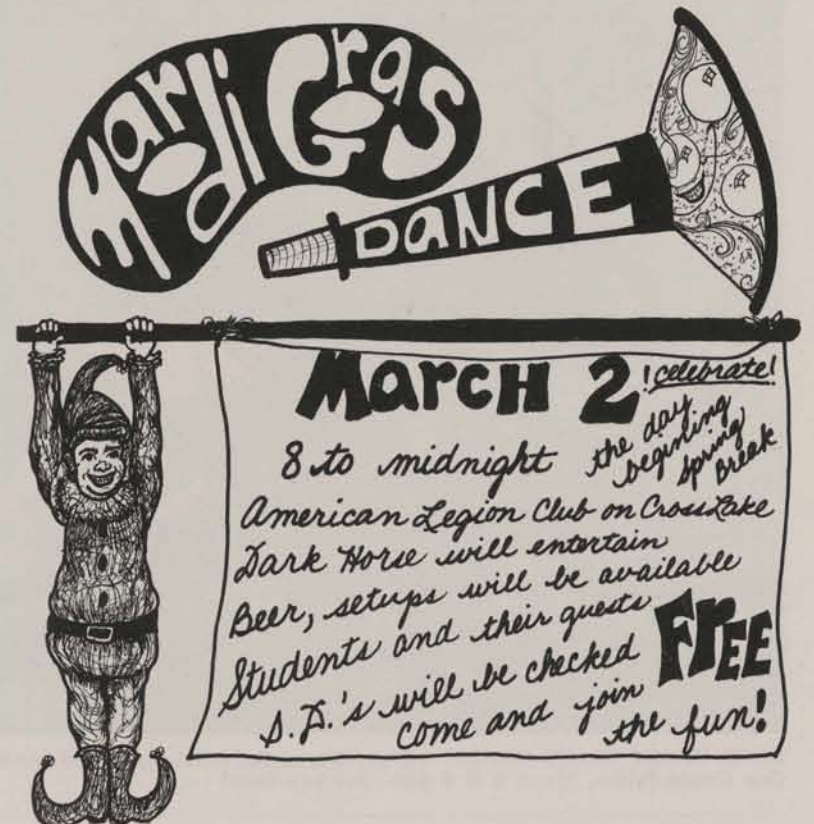 Mardi Gras
DANCE
March 2
!celebrate!
the day
begining
Spring
Break
8 to midnight
American Legion Club on Cross Lake
Dark Horse will entertain
Beer, setups will be available
Students and their guests FREE
I.D.'s will be checked
come and join
the fun!